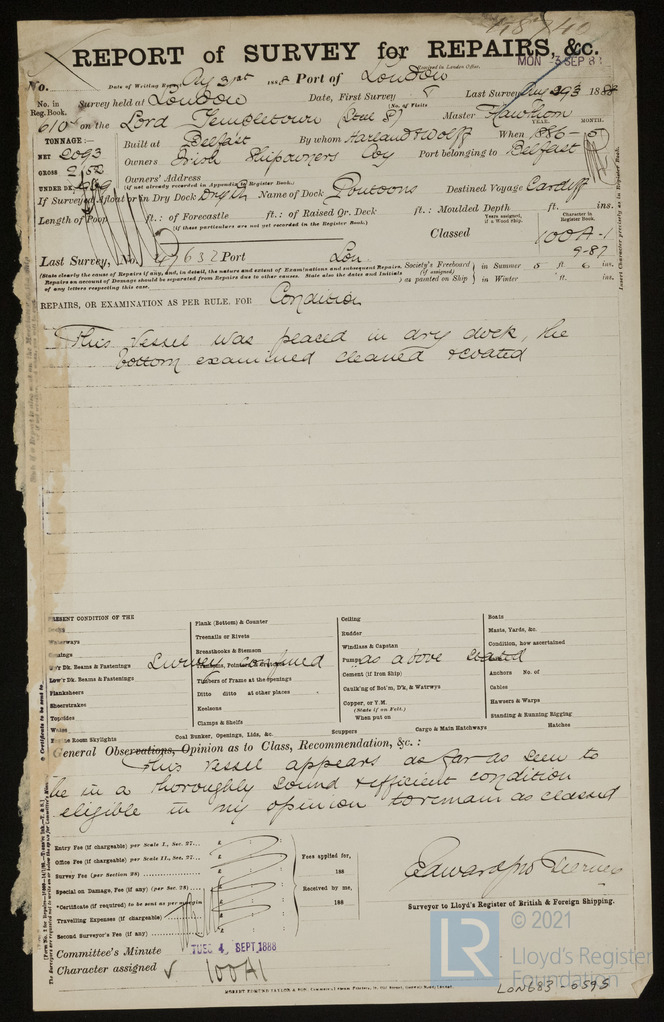 REPORT of SURVEY for REPAIRS, &c.
Received in London Office.
MON. 3 SEP 88
No.
Date of Writing Report Aug 31st 1888 Port of London
No. in Reg. Book.
Survey held at London Date, First Survey Last Survey Aug 1888
(No. of Visits 8
610 on the Lord Templetown Master Hawthorn
TONNAGE:— YEAR. MONTH.
NET 2093
Built at Belfast By whom Harland & Wolff When 1886 - 5
GROSS 2152
Owners Irish Shipowners Coy Port belonging to Belfast
UNDER DK.
Owners' Address
(if not already recorded in Appendix to Register Book.)
If Surveyed Afloat or in Dry Dock Dry Dk Name of Dock Pontoons Destined Voyage Cardiff
Length of Poop ft.: of Forecastle ft.: of Raised Qr. Deck ft.: Moulded Depth ft. ins.
(If these particulars are not yet recorded in the Register Book.)
Years assigned, if a Wood Ship.
Character in Register Book.
Classed 100A-1
9-87
Insert Character precisely as in Register Book.
Last Survey, No. 47632 Port Lon.
(State clearly the cause of Repairs if any, and, in detail, the nature and extent of Examinations and subsequent Repairs. Repairs on account of Damage should be separated from Repairs due to other causes. State also the dates and initials of any letters respecting this case.
Society's Freeboard (if assigned) as painted on Ship
in Summer 5 ft 6 ins.
in Winter ft. ins.
REPAIRS, OR EXAMINATION AS PER RULE. FOR Condition
This vessel was placed in dry dock, the
bottom examined cleaned & coated
PRESENT CONDITION OF THE
Decks
Waterways
Comings
Up'r Dk. Beams & Fastenings
Low'r Dk. Beams & Fastenings
Planksheers
Sheerstrakes
Topsides
Wales
Engine Room Skylights
Plank (Bottom) & Counter
Treenails or Rivets
Breasthooks & Stemson
Timbers of Frame at the openings
Ditto ditto at other places
Keelsons
Clamps & Shelfs
Coal Bunker, Openings, Lids, &c.
Ceiling
Rudder
Windlass & Capstan
Pumps
Cement (if Iron Ship)
Caulk'ng of Bot'm, D'k, & Watrwys
Copper, or Y.M.
(State if on Felt.)
When put on
Scuppers
Cargo & Main Hatchways
Boats
Masts, Yards, &c.
Condition, how ascertained
Anchors No. of
Cables
Hawsers & Warps
Standing & Running Rigging
Hatches
Survey confined as above stated
General Observations, Opinion as to Class, Recommendation, &c.:
This vessel appears as far as seen to
be in a thoroughly sound & efficient condition
eligible in my opinion to remain as classed
Entry Fee (if chargeable) per Scale I., Sec. 27... £ : :
Office Fee (if chargeable) per Scale II., Sec. 27... £ : :
Survey Fee (per Section 28) £ : :
Special or Damage, Fee (if any) (per Sec. 28) £ : :
*Certificate (if required) to be sent as per margin
Travelling Expenses (if chargeable) £ : :
Second Surveyor's Fee (if any) £ : :
Fees applied for,
188
Received by me,
188
Surveyor to Lloyd's Register of British & Foreign Shipping.
Committee's Minute TUES 4 SEPT 1888
Character assigned 100A1
* Certificate to be sent to
LR
© 2021
Lloyd's Register
Foundation
LON683-0595